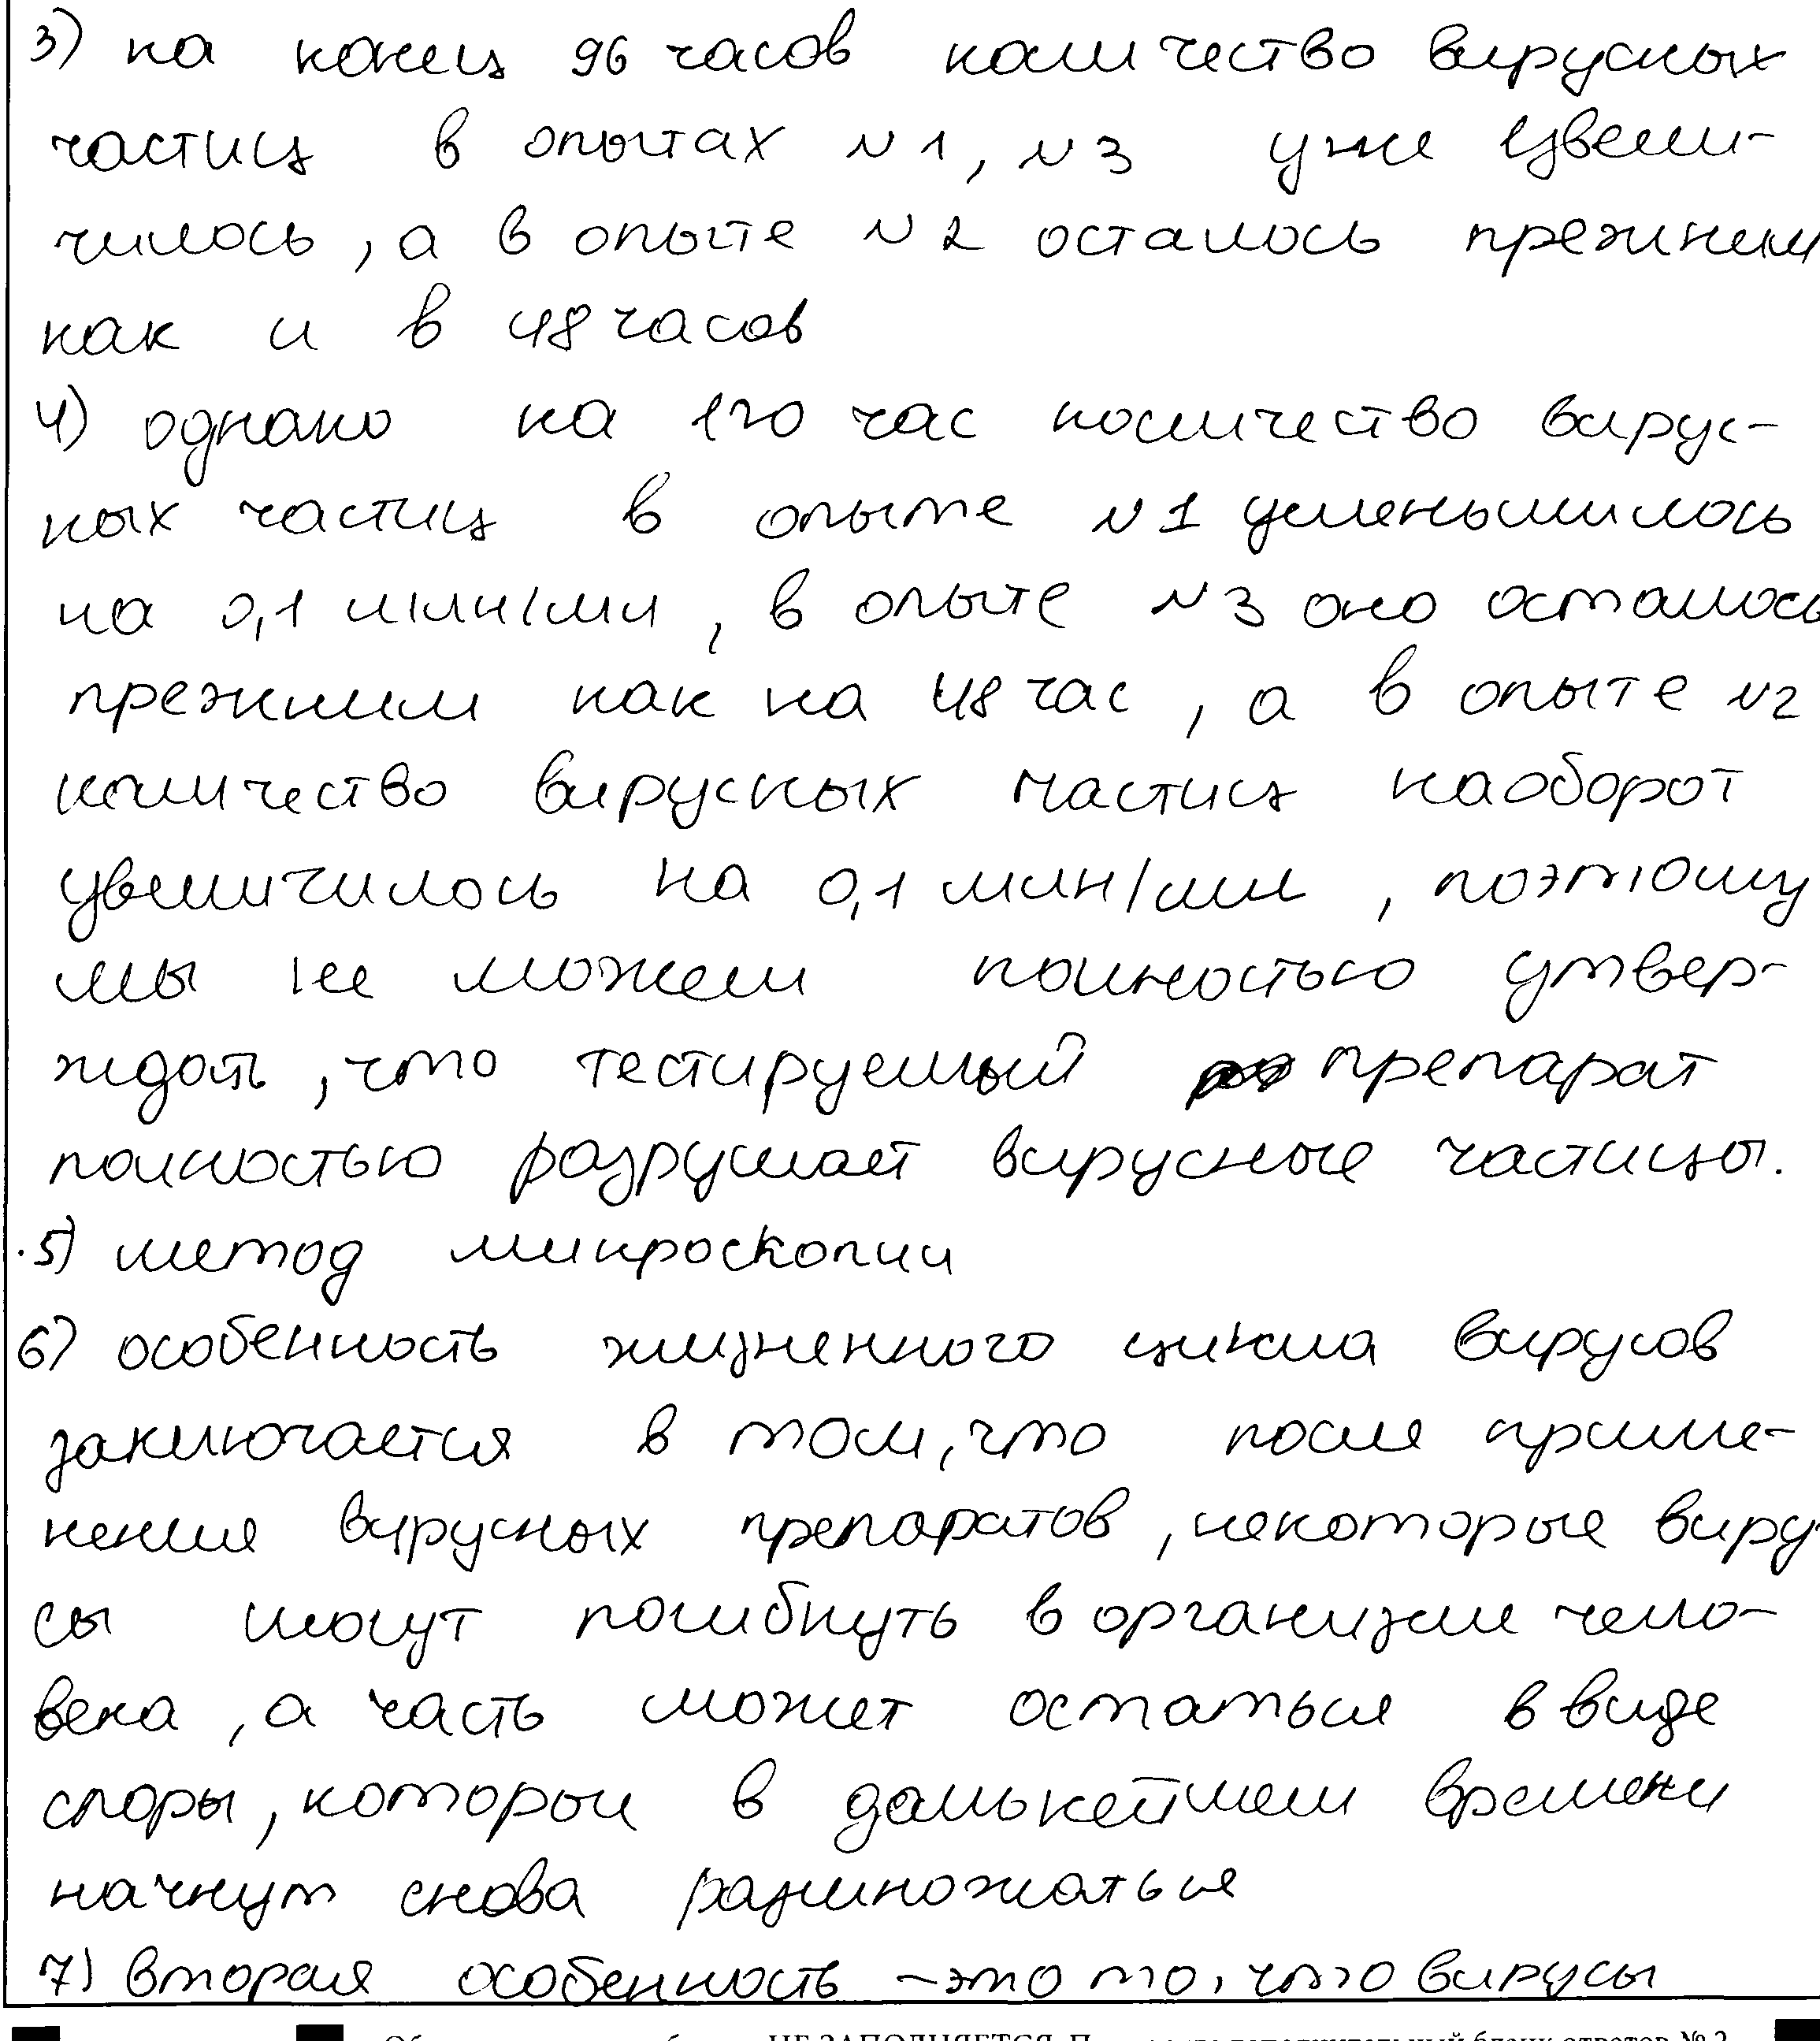 3) на конец 96 часов количество вирусных
частиц в опытах N1, N3 уже увели-
чилось, а в опыте N2 осталось прежним
как и в 48 часов
4) однако на 120 час количество вирус-
ных частиц в опыте N1 уменьшилось
на 0,1 млн/мл, в опыте N3 оно осталось
прежним как на 48 час, а в опыте N2
количество вирусных частиц наоборот
увеличилось на 0,1 млн/мл, поэтому
мы не можем полностью утвер-
ждать, что тестируемый препарат
полностью разрушает вирусные частицы.
5) метод микроскопии
6) особенность жизненного цикла вирусов
заключается в том, что после приме-
нения вирусных препаратов, некоторые виру-
сы могут погибнуть в организме чело-
века, а часть может остаться в виде
споры, которые в дальнейшем времени
начнут снова размножаться
7) вторая особенность - это то, что вирусы